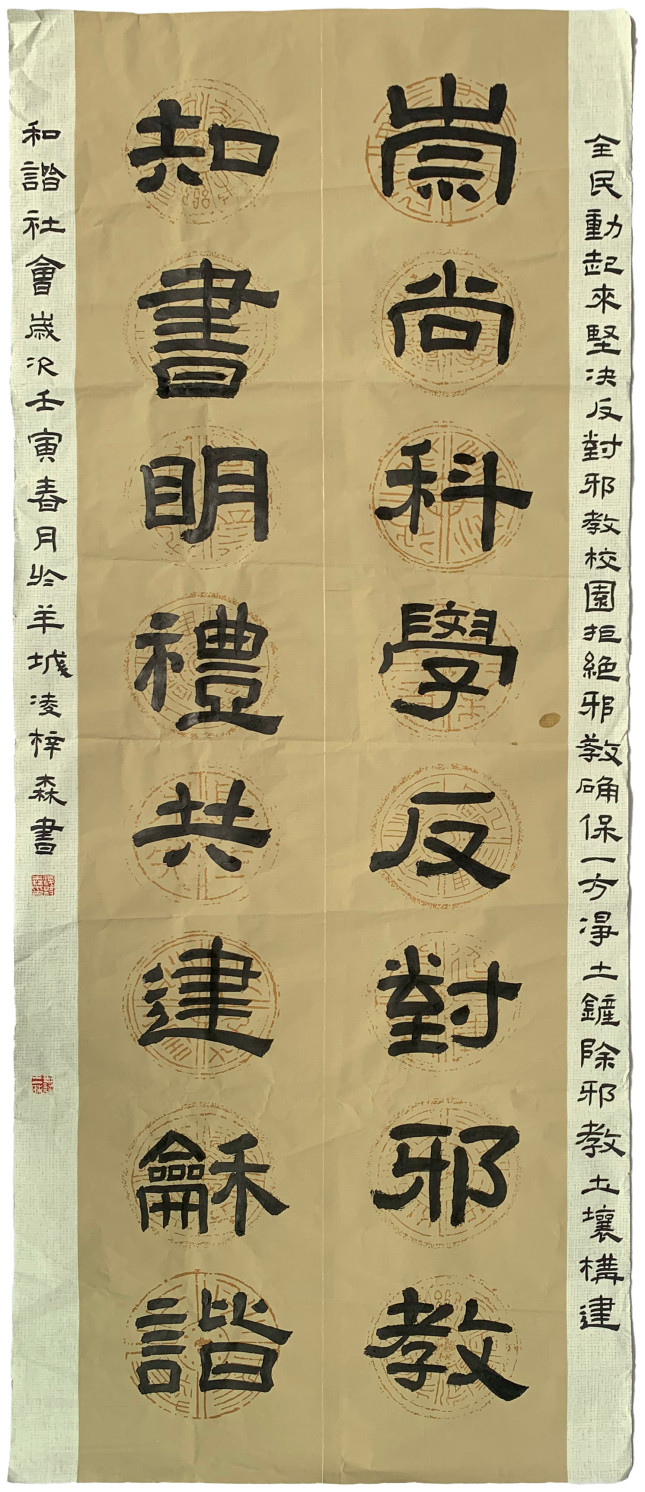 全民動起來堅决反對邪教校園拒絶邪教确保一方淨土鏟除邪教土壤構建
崇尚科學反對邪教
知書明禮共建龢諧
和諧社會歲次壬寅春月於羊城凌梓森書